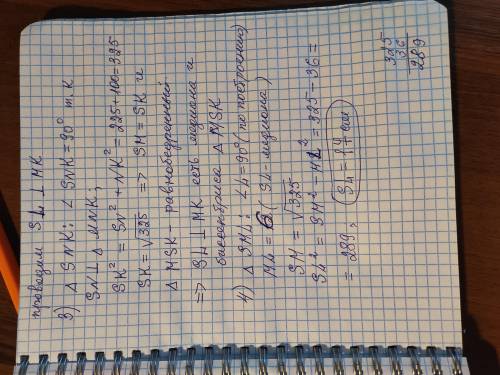 проводим SL ⊥ MK
3) △ SNK: ∠ SNK = 90° т.к
SN ⊥ △ MNK;
SK² = SN² + NK² = 225 + 100 = 325
SK = √325 => SM = SK и
△ MSK - равнобедренный
=> SL ⊥ MK есть медиана и
бассектриса △ MSK
4) △ SML: ∠L = 90° (по построению)
ML = 6 (SL - медиана)
SM = √325
SL² = SM² - ML² = 325 - 36 =
= 289; SL = 17 см
325
36
289